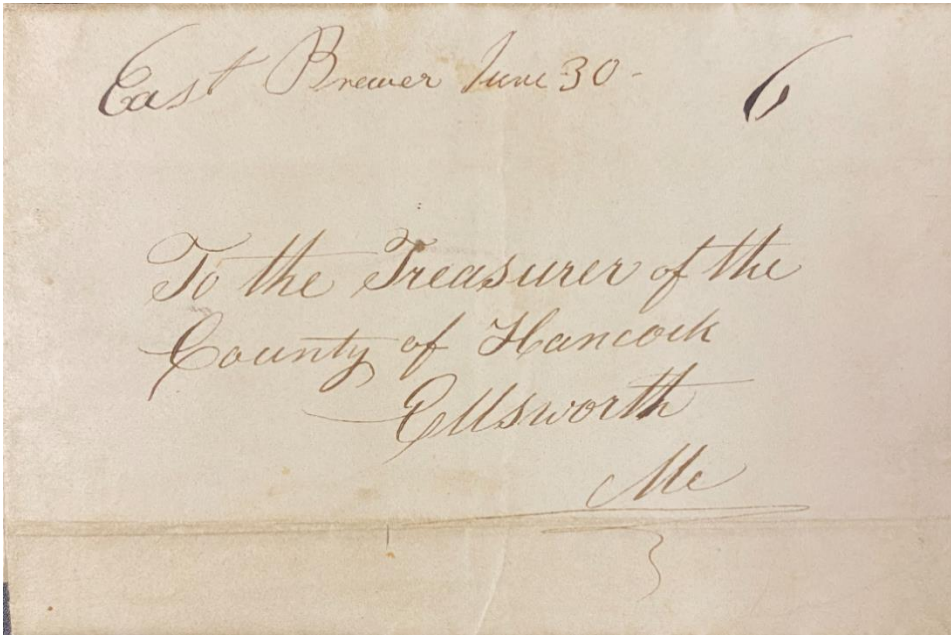 East Brewer June 30- 6
To the Treasurer of the
County of Hancock
Ellsworth
Me